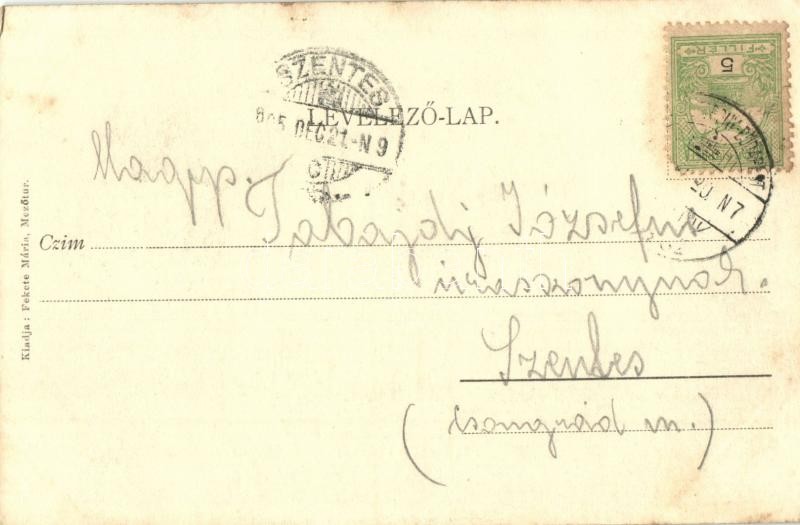 FILLÉR
5
SZENTES
905 DEC 21 - N 9
LEVELEZŐ-LAP.
20 N 7
Nagys.
Tabajdy Józsefné
Czim
úrasszonynak.
Szentes
(Csongrád m.)
Kiadja: Fekete Mária, Mezőtur.